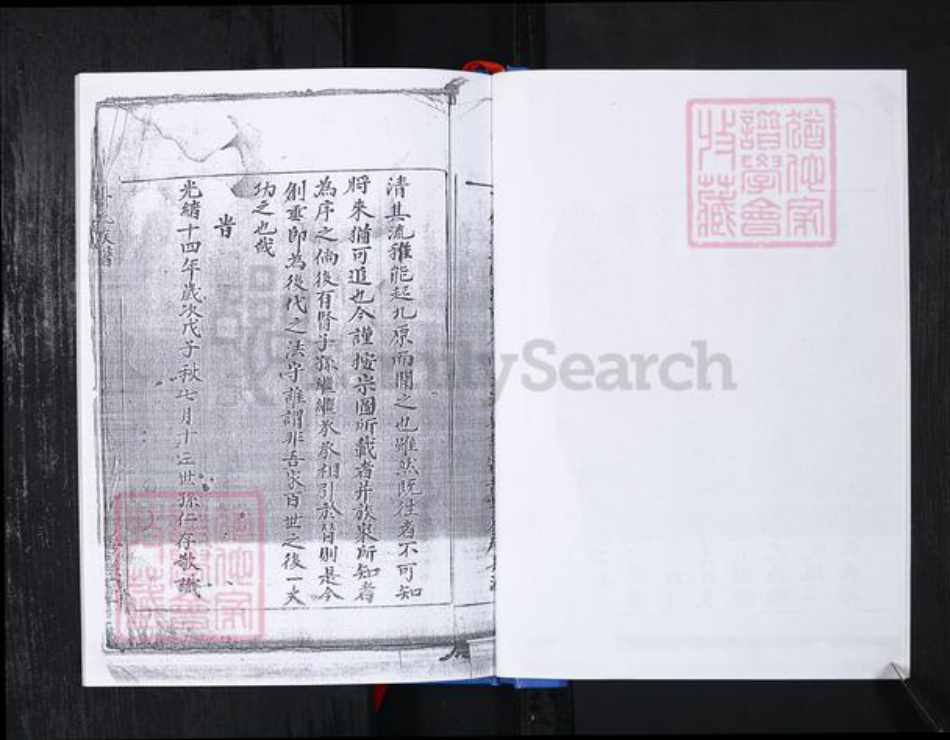 清其流雖能起九原而聞之也雖然既往者不可知
將來猶可追也今謹按宗圖所載者并族衆所知者
為序之倘後有賢子孫繼繼承承相引於替則是今
創垂即為後代之法守誰謂非吾家百世之後一大
功之也哉
旹
光緒十四年歲次戊子秋七月十三世孫仁存敬識
猶他家
譜學會
收藏
FamilySearch
猶他家
譜學會
收藏